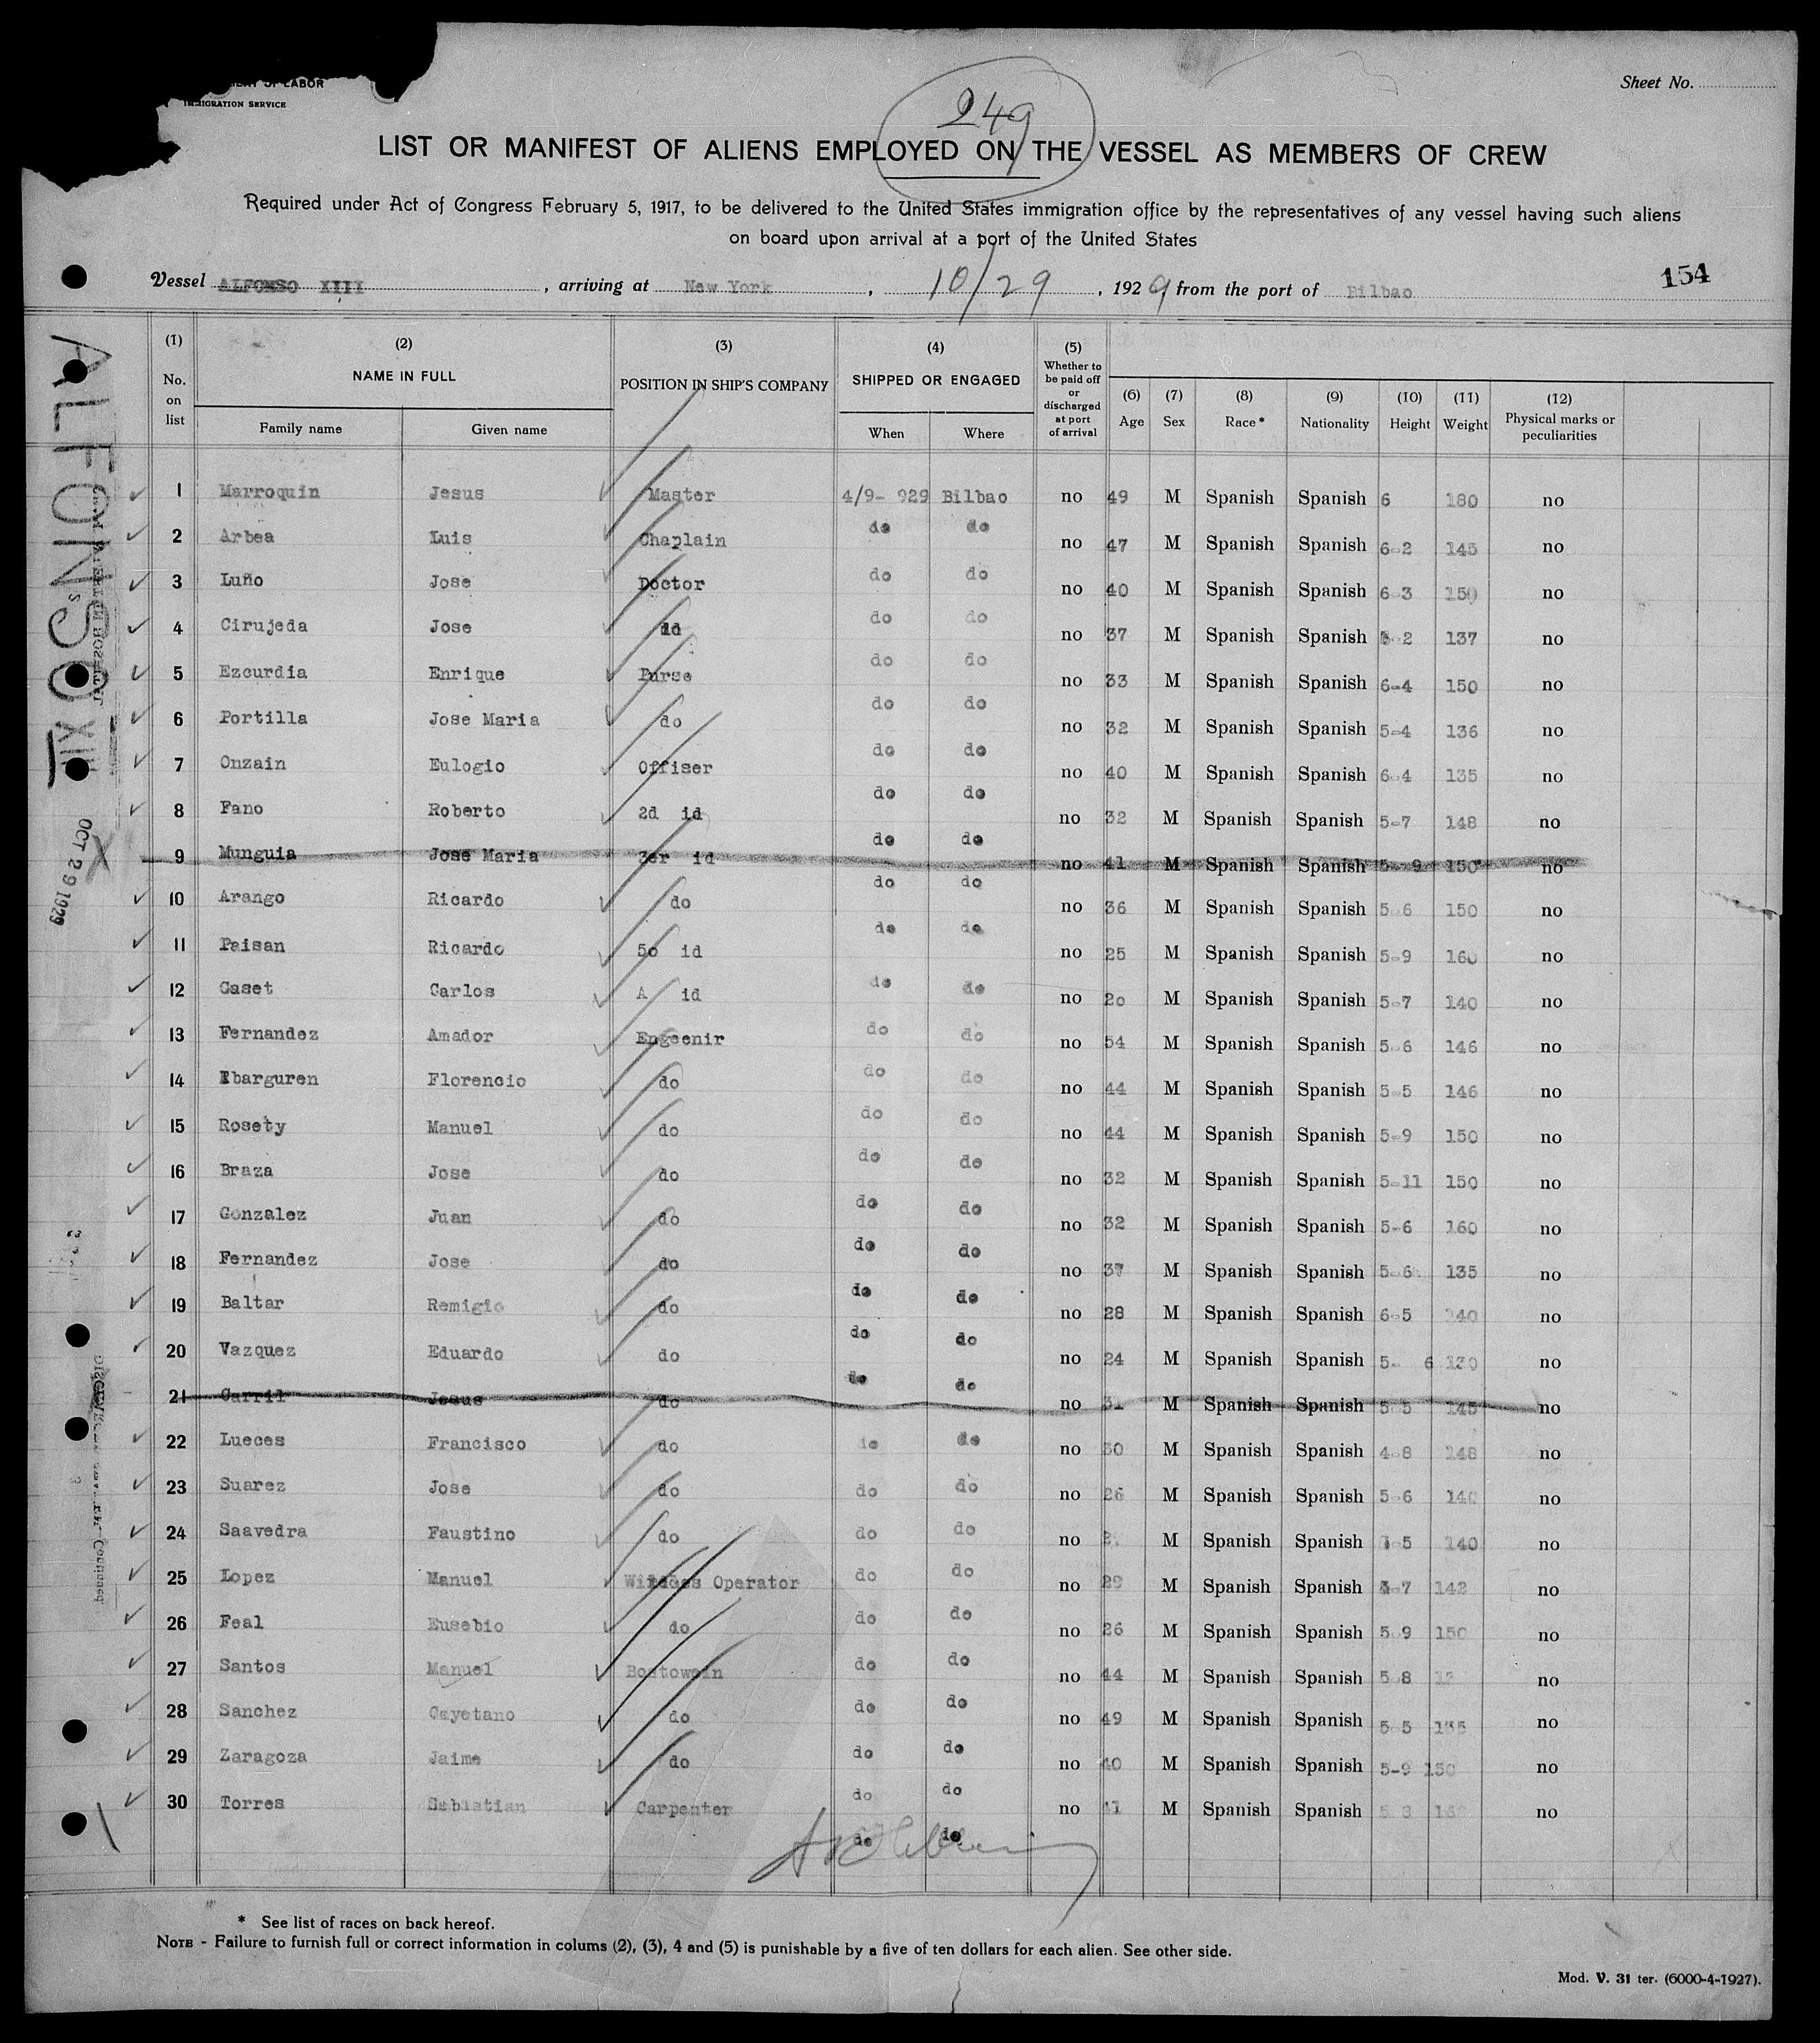 OF LABOR
IMMIGRATION SERVICE
Sheet No.
249
LIST OR MANIFEST OF ALIENS EMPLOYED ON THE VESSEL AS MEMBERS OF CREW
Required under Act of Congress February 5, 1917, to be delivered to the United States immigration office by the representatives of any vessel having such aliens
on board upon arrival at a port of the United States
Vessel ALFONSO XIII, arriving at New York, 10/29, 1929 from the port of Bilbao
154
ALFONSO XIII
OCT 29 1929
(1) No. on list
(2) NAME IN FULL Family name Given name
(3) POSITION IN SHIP'S COMPANY
(4) SHIPPED OR ENGAGED When Where
(5) Whether to be paid off or discharged at port of arrival
(6) Age (7) Sex (8) Race* (9) Nationality (10) Height (11) Weight (12) Physical marks or peculiarities
1 Marroquin Jesus Master 4/9- 929 Bilbao no 49 M Spanish Spanish 6 180 no
2 Arbea Luis Chaplain do do no 47 M Spanish Spanish 6-2 145 no
3 Luño Jose Doctor do do no 40 M Spanish Spanish 6-3 150 no
4 Cirujeda Jose id do do no 37 M Spanish Spanish 5-2 137 no
5 Ezcurdia Enrique Purse do do no 33 M Spanish Spanish 6-4 150 no
6 Portilla Jose Maria do do do no 32 M Spanish Spanish 5-4 136 no
7 Onzain Eulogio Offiser do do no 40 M Spanish Spanish 6-4 135 no
8 Fano Roberto 2d id do do no 32 M Spanish Spanish 5-7 148 no
9 Munguia Jose Maria 3er id do do no 41 M Spanish Spanish 5-9 150 no
10 Arango Ricardo do do do no 36 M Spanish Spanish 5-6 150 no
11 Paisan Ricardo 5o id do do no 25 M Spanish Spanish 5-9 160 no
12 Gaset Carlos A id do do no 2o M Spanish Spanish 5-7 140 no
13 Fernandez Amador Engeenir do do no 54 M Spanish Spanish 5-6 146 no
14 Ibarguren Florencio do do do no 44 M Spanish Spanish 5-5 146 no
15 Rosety Manuel do do do no 44 M Spanish Spanish 5-9 150 no
16 Braza Jose do do do no 32 M Spanish Spanish 5-11 150 no
17 Gonzalez Juan do do do no 32 M Spanish Spanish 5-6 160 no
18 Fernandez Jose do do do no 37 M Spanish Spanish 5-6 135 no
19 Baltar Remigio do do do no 28 M Spanish Spanish 6-5 140 no
20 Vazquez Eduardo do do do no 24 M Spanish Spanish 5- 6 130 no
21 Carril Jesus do do do no 31 M Spanish Spanish 5-5 145 no
22 Lueces Francisco do do do no 30 M Spanish Spanish 4-8 148 no
23 Suarez Jose do do do no 26 M Spanish Spanish 5-6 140 no
24 Saavedra Faustino do do do no M Spanish Spanish -5 140 no
25 Lopez Manuel Operator do do no 29 M Spanish Spanish -7 142 no
26 Feal Eusebio do do do no 26 M Spanish Spanish 5-9 150 no
27 Santos Manuel Bostowain do do no 44 M Spanish Spanish 5-8 no
28 Sanchez Cayetano do do do no 49 M Spanish Spanish 5-5 135 no
29 Zaragoza Jaime do do do no 40 M Spanish Spanish 5-9 150 no
30 Torres Sebistian Carpenter do do no 41 M Spanish Spanish no
do do
* See list of races on back hereof.
NOTE - Failure to furnish full or correct information in colums (2), (3), 4 and (5) is punishable by a five of ten dollars for each alien. See other side.
Mod. V. 31 ter. (6000-4-1927).